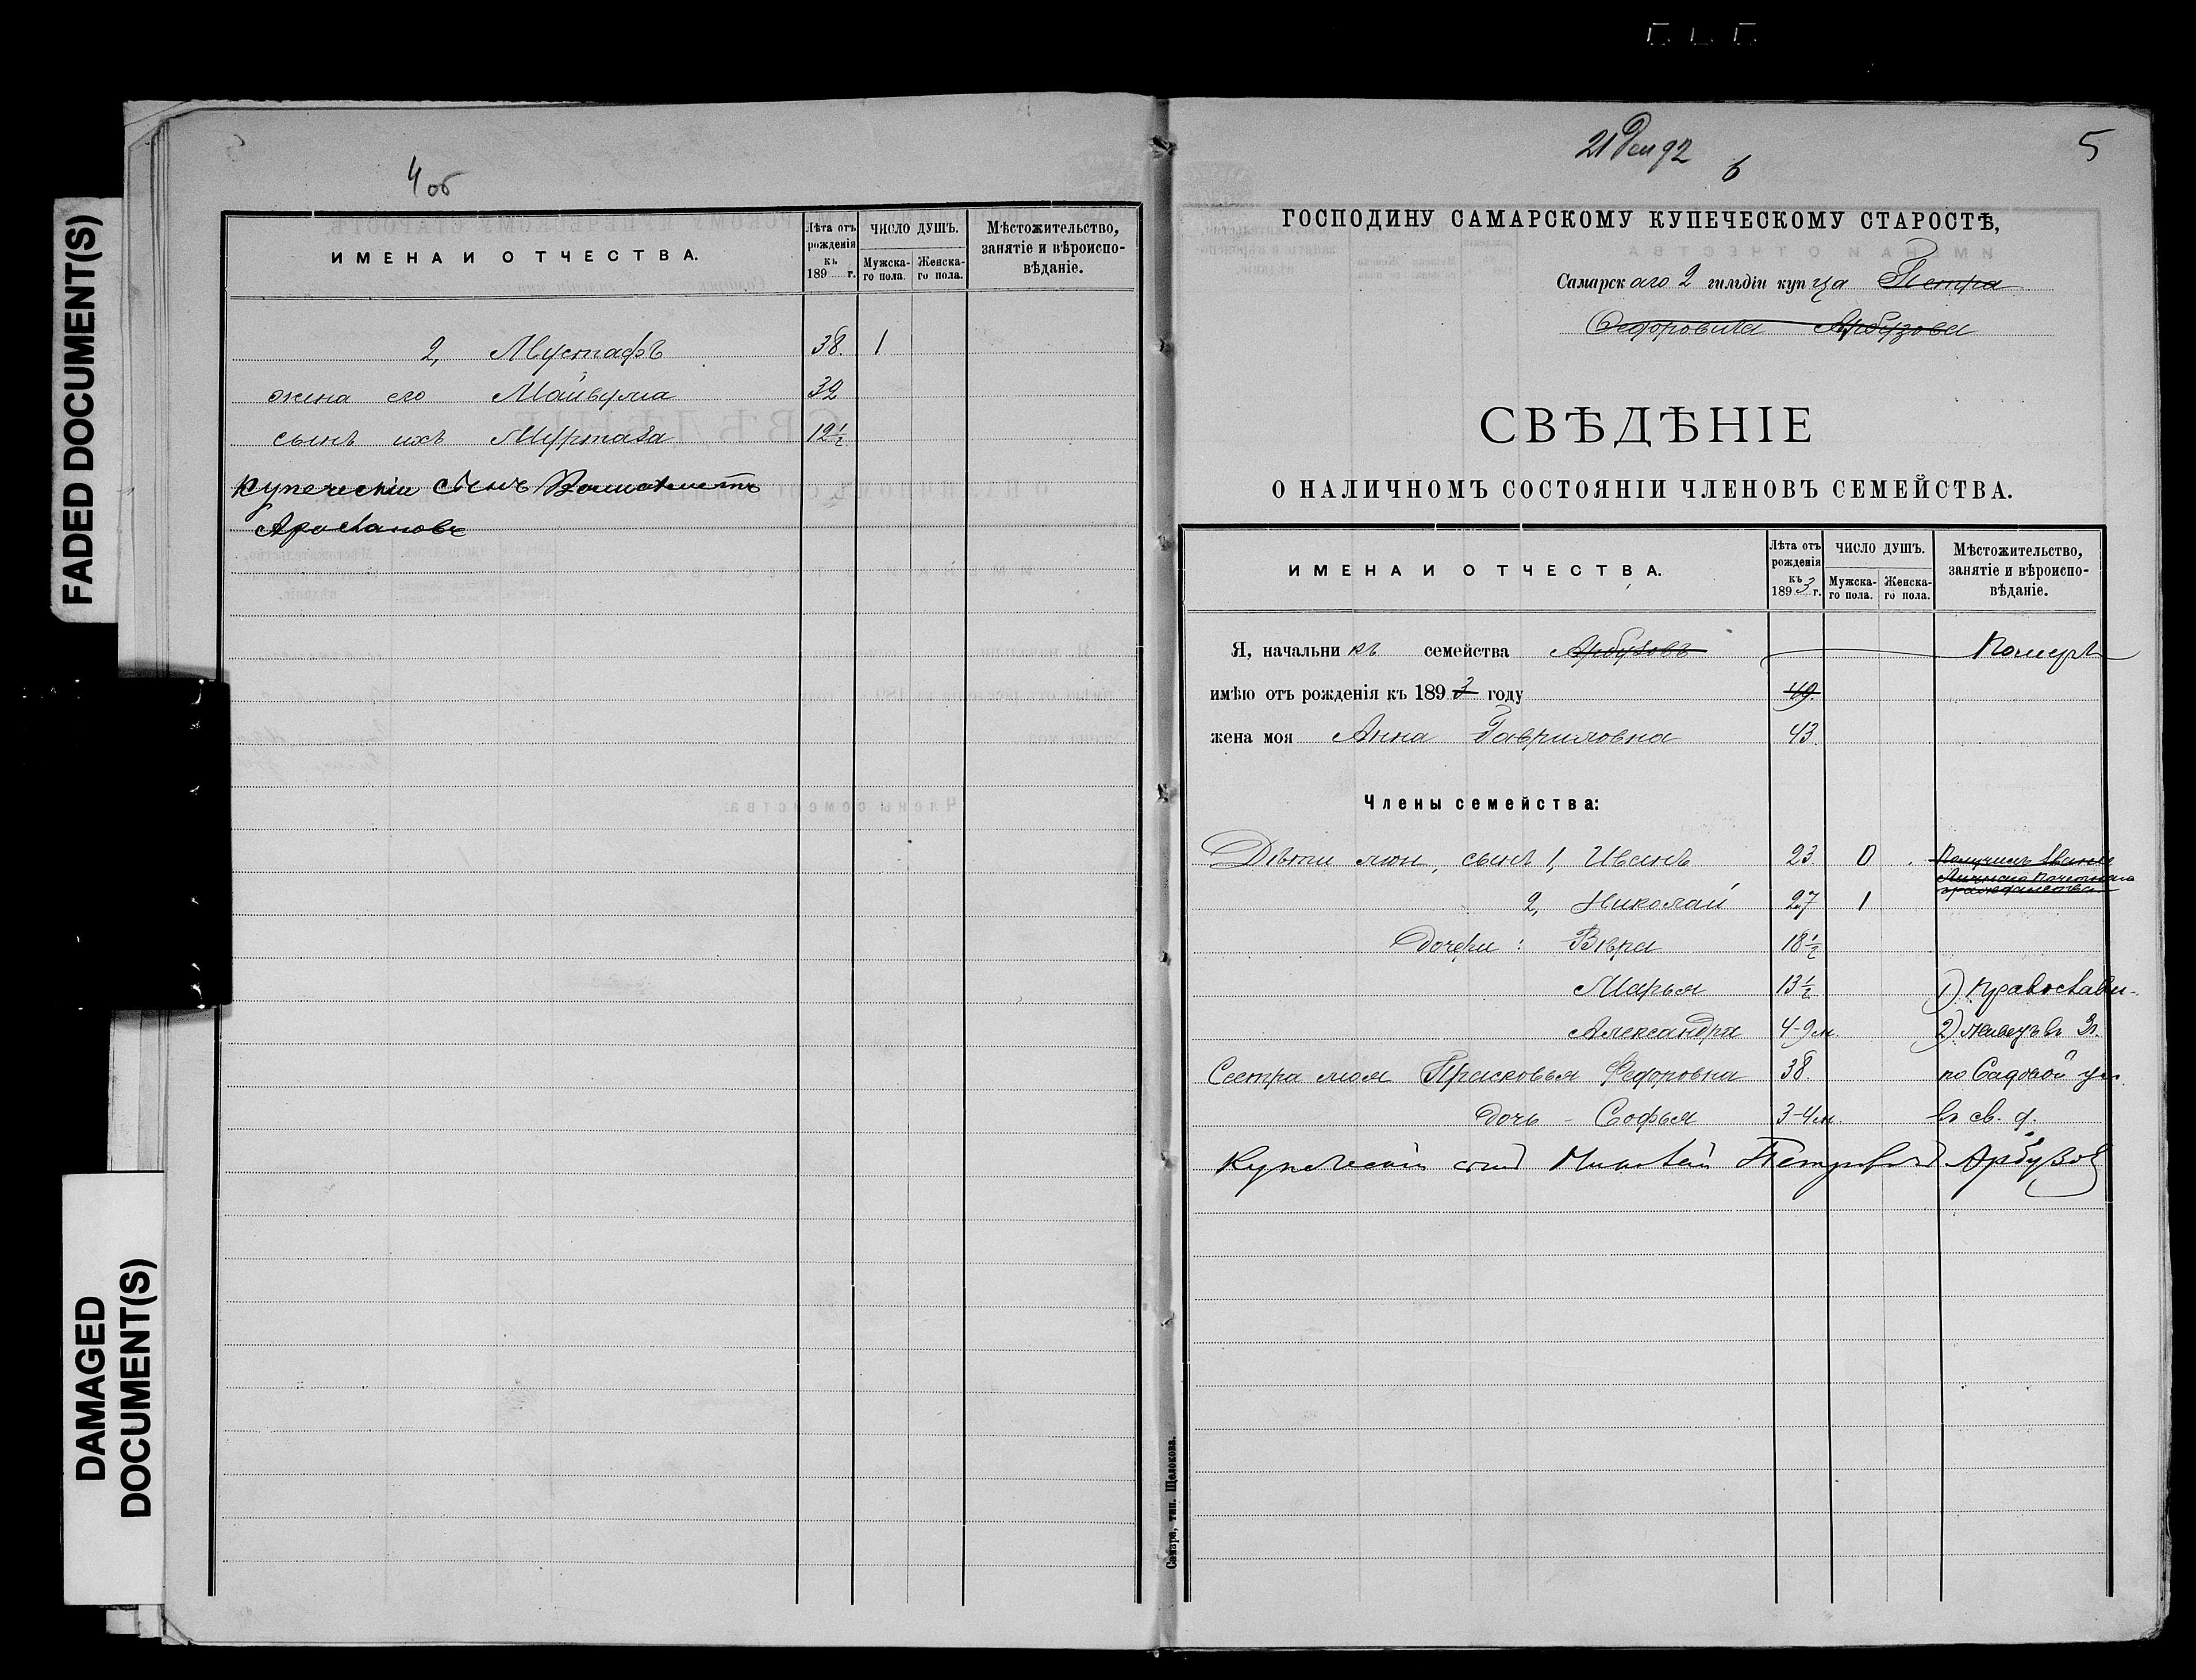 FADED DOCUMENT(S)
DAMAGED
DOCUMENT(S)
4 об
ИМЕНА И ОТЧЕСТВА.
Лѣта отъ рожденія къ 189 г.
ЧИСЛО ДУШЪ.
Мужска-го пола.
Женска-го пола.
Мѣстожительство, занятіе и вѣроиспо-вѣданіе.
2, Мустафъ 38. 1
жена его 32
сынъ ихъ Муртаза 12 1/2
Купеческій сынъ
Арслановъ
21 Дек 92
6
5
ГОСПОДИНУ САМАРСКОМУ КУПЕЧЕСКОМУ СТАРОСТѢ,
Самарскаго 2 гильдіи купца Петра
Федоровича Арбузова
СВѢДѢНІЕ
О НАЛИЧНОМЪ СОСТОЯНІИ ЧЛЕНОВЪ СЕМЕЙСТВА.
ИМЕНА И ОТЧЕСТВА.
Лѣта отъ рожденія къ 1893 г.
ЧИСЛО ДУШЪ.
Мужска-го пола.
Женска-го пола.
Мѣстожительство, занятіе и вѣроиспо-вѣданіе.
Я, начальникъ семейства Арбузовъ Померъ
имѣю отъ рожденія къ 1893 году 49.
жена моя Анна Гавриловна 43.
Члены семейства:
Дѣти мои, сынъ 1, Иванъ 23. 0 Получилъ званіе
Личнаго Почетнаго
гражданства
2, Николай 27 1
Дочери: Вѣра 18 1/2
Марья 13 1/2 1) Православн-
Александра 4-9 м. 2) живетъ въ 3 ч.
Сестра моя Прасковья Федоровна 38. по Садовой ул.
дочь - Софья 3-4 м. въ св. д.
Купеческій сынъ Николай Петровъ Арбузов
Самара, тип. Щелокова.